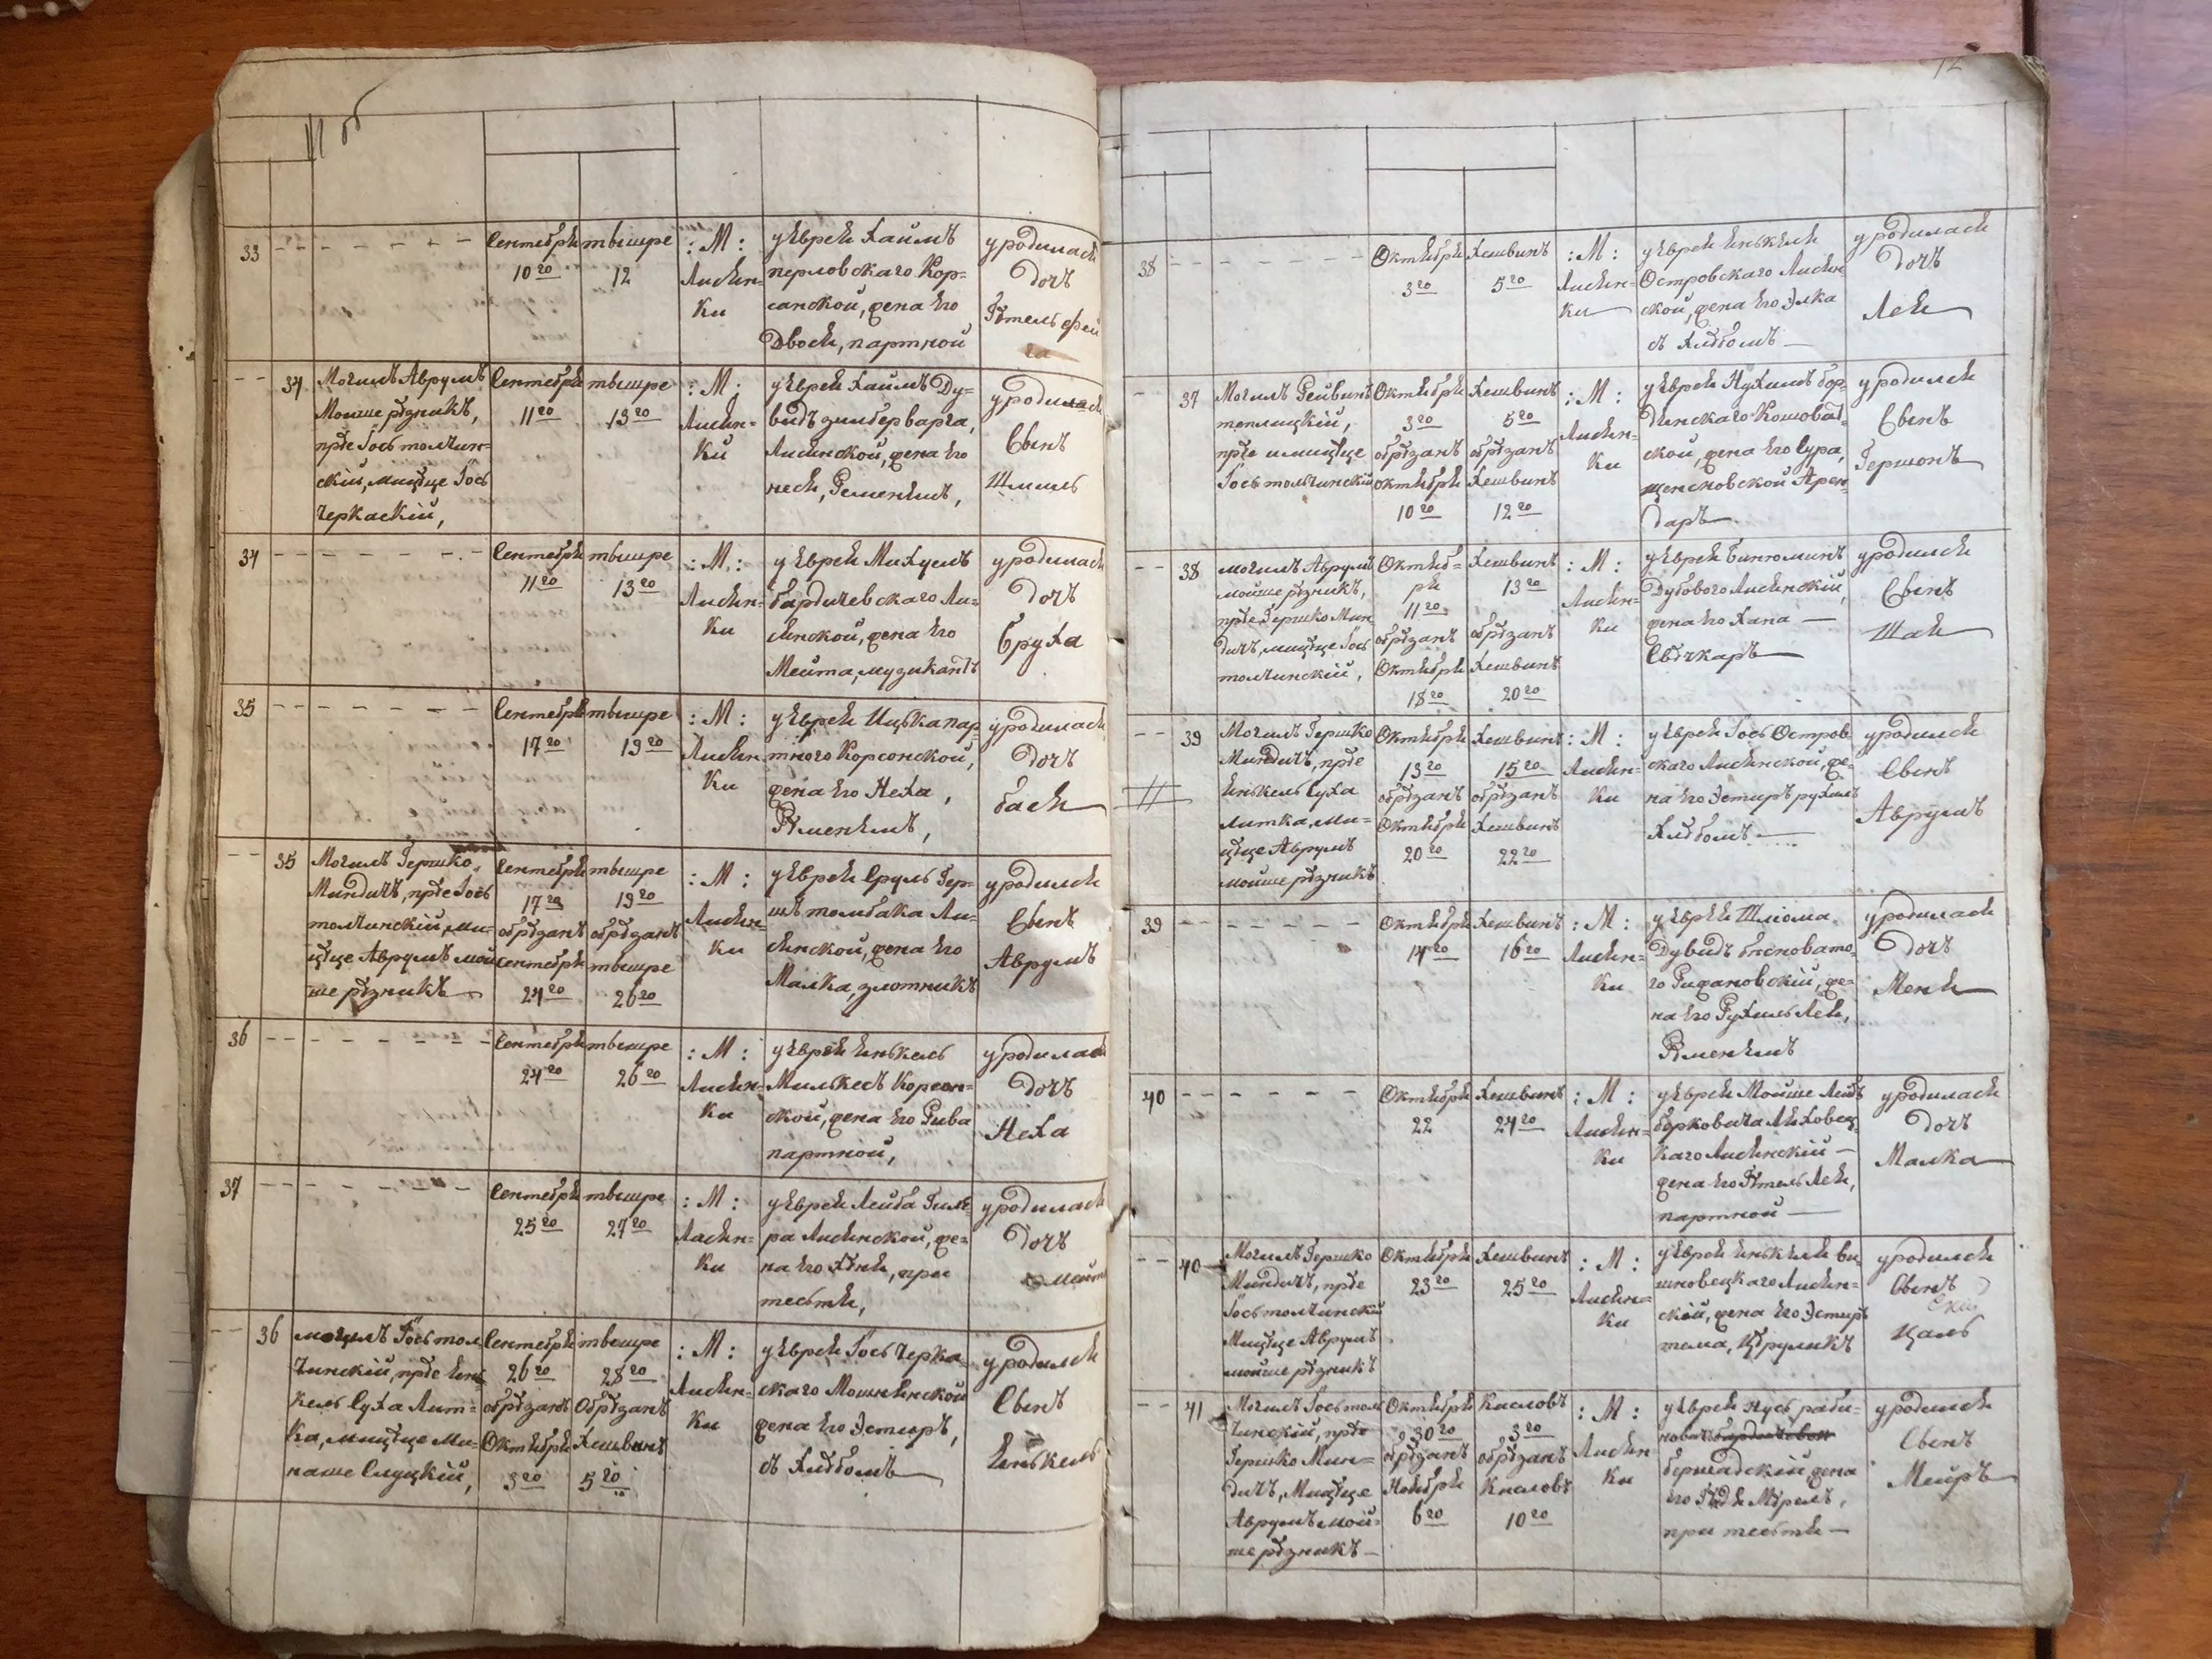 12
33
Сентября
10го
тышре
12
: М :
Лисян=
ки
у Еврея Хаимъ
перловскаго Кор=
санской, жена Его
Двося, партной
уродилась
дочъ
34
Могилъ Аврумъ
Моише рѣзникъ,
прѣе Іось толчин=
скій, мицѣце Іось
Черкаскій,
Сентября
11го
тышре
13го
: М :
Лисян=
ки
у Еврея Хаимъ Ду=
видъ зильберварга,
Лисянской, жена Его
неся, Ременямъ,
уродился
Сынъ
Шмиль
34
Сентября
11го
тышре
13го
: М :
Лисян=
ки
у Еврея Михуель
бардичевскаго Ли=
сянской, жена Его
Мейта, музикантъ
уродилась
дочъ
Бруха
35
Сентября
17го
тышре
19го
: М :
Лисян
ки
у Еврея Ицька пар
тного Корсонской,
жена Его Неха,
Рѣменямъ,
уродилась
дочъ
бася
35
Могилъ Гершко
Миндичъ, прѣе Іось
толчинскій, ми=
цѣце Аврумъ мой
ше рѣзникъ
Сентября
17го
обрѣзанъ
Сентября
24го
тышре
19го
обрѣзанъ
тышре
26го
: М :
Лисян=
ки
у Еврея Сруль Гер=
шъ толмбака Ли=
сянской, жена Его
Малка, злотникъ
уродился
Сынъ
Аврумъ
36
Сентября
24го
тышре
26го
: М :
Лисян=
ки
у Еврея Янькель
Милькесъ Корсон=
ской, жена Его Рива
партной,
уродилась
дочъ
Неха
37
Сентября
25го
тышре
27го
: М :
Лисян=
ки
у Еврея Лейба
Лисянской, же=
на Его Хѣня, при
тестѣ,
уродилась
дочъ
36
могилъ Іось тол
чинскій, прѣе Янь
кель Суха Лит=
ка, мицѣце Ми=
наше Слуцкій,
Сентября
26го
обрѣзанъ
Октября
3го
тышре
28го
Обрѣзанъ
Хешвинъ
5го
: М :
Лисян=
ки
у Еврея Іось Черка
скаго Мошнянской
жена Его Эстиръ,
съ Хлѣбомъ
уродился
Сынъ
Янькель
38
Октября
3го
Хешвинъ
5го
: М :
Лисян=
ки
у Еврея Янькеля
Островскаго Лисян
ской, жена Его Элка
съ Хлѣбомъ
уродилась
дочъ
Лея
37
Могилъ Рейвинъ
теплицкій,
прѣе и мицѣце
Іось толчинскій
Октября
3го
обрѣзанъ
октября
10го
Хешвинъ
5го
обрѣзанъ
Хешвинъ
12го
: М :
Лисян=
ки
у Еврея Нухимъ бор
динскаго Кошоват
ской, жена Его Сура,
Арен=
даръ
уродился
Сынъ
Гершонъ
38
могилъ Аврумъ
мойше рѣзникъ,
прѣе Гершко Мин
дичъ, мицѣце Іось
толчинскій,
Октяб=
ря
11го
обрѣзанъ
Октября
18го
Хешвинъ
13го
обрѣзанъ
Хешвинъ
20го
: М :
Лисян=
ки
у Еврея Бинюминъ
Дубового Лисянскій,
жена Его Хана
Свѣчкаръ
уродился
Сынъ
Шая
39
Могилъ Гершко
Миндичъ, прѣе
Янькель Суха
литка, ми=
цѣце Аврумъ
мойше рѣзникъ
Октября
13го
обрѣзанъ
Октября
20го
Хешвинъ
15го
обрѣзанъ
Хешвинъ
22го
: М :
Лисян=
ки
у Еврея Іось Остров
скаго Лисянской, же=
на Его Эстиръ рухиль
Хлѣбомъ
уродился
Сынъ
Аврумъ
39
Октября
14го
Хешвинъ
16го
: М :
Лисян=
ки
у Еврея Шліома
Дувидъ бясновато
го Рижановскій, же=
на Его Рухиль Лея,
Рѣменямъ
уродилась
дочъ
Меня
40
Октября
22
Хешвинъ
24го
: М :
Лисян=
ки
у Еврея Мойше Лейб
борковича Ляховец
каго Лисянскій
жена Его Ѣтель Лея,
партной
уродилась
дочъ
Малка
40
Могилъ Гершко
Миндичъ, прѣе
Іось толчинскій
Мицѣце Аврумъ
мойше рѣзникъ
Октября
23го
Хешвинъ
25го
: М :
Лисян=
ки
у Еврея Янькеля ви
шновецкаго Лисян=
скій, жена Его Эстиръ
тема, Цѣруликъ
уродился
Сынъ
Цаль
41
Могилъ Іось тол
чинскій, прѣе
Гершко Мин=
дичъ, Мицѣце
Аврумъ мой=
ше рѣзникъ
Октября
30го
обрѣзанъ
Ноября
6го
Кисловъ
3го
обрѣзанъ
Кисловъ
10го
: М :
Лисян
ки
у Еврея Нусь раби=
бершадскій жена
при тестѣ
уродился
Сынъ
Меиръ